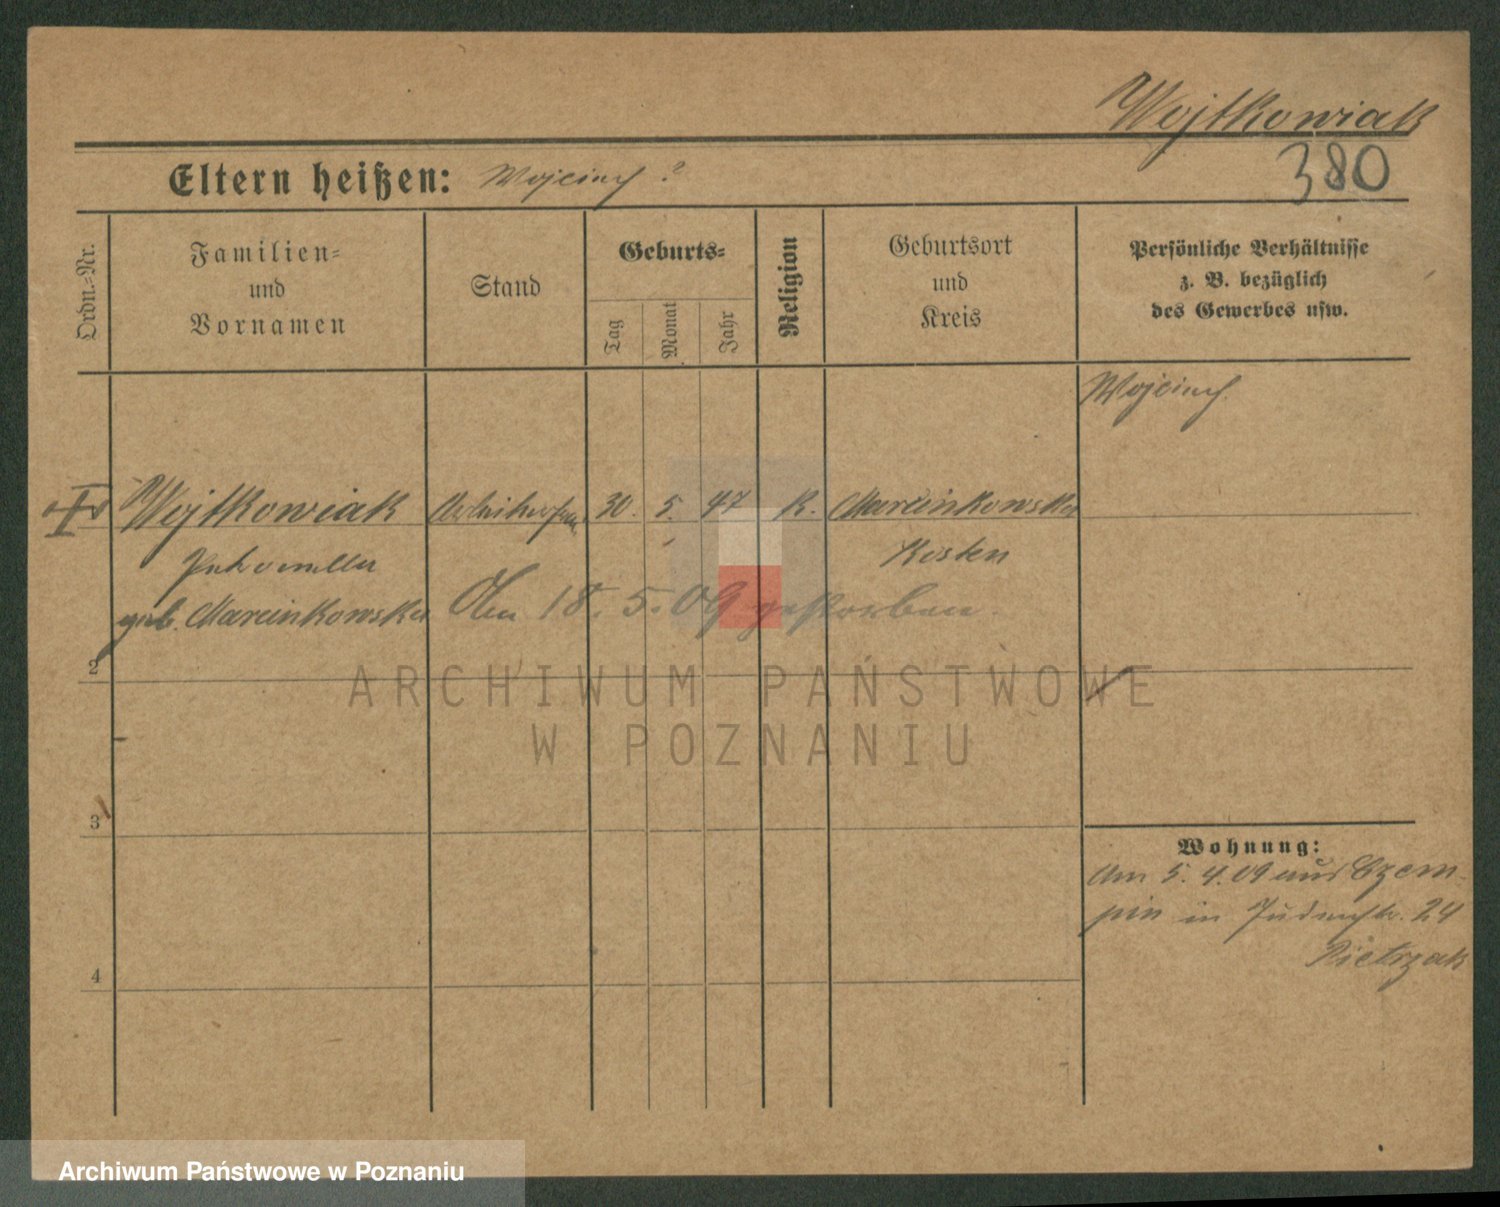 Wojtkowiak
380
Eltern heißen: Wojciech ?
Ordn.-Nr.
Familien-
und
Vornamen
Stand
Geburts-
Tag
Monat
Jahr
Religion
Geburtsort
und
Kreis
Persönliche Verhältnisse
z. B. bezüglich
des Gewerbes usw.
Wojciech
Wojtkowiak Arbeiterfrau 30. 5. 47 K. Marcinkowska
Petronella Kosten
geb. Marcinkowska Am 18. 5. 09 gestorben.
2
3
4
Wohnung:
Am 5. 4. 09 aus Czem-
pin in Judenstr. 24
Pietrzak
ARCHIWUM PAŃSTWOWE
W POZNANIU
Archiwum Państwowe w Poznaniu